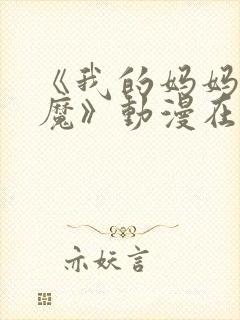 《我的妈妈
魔》動漫在
亦妖言